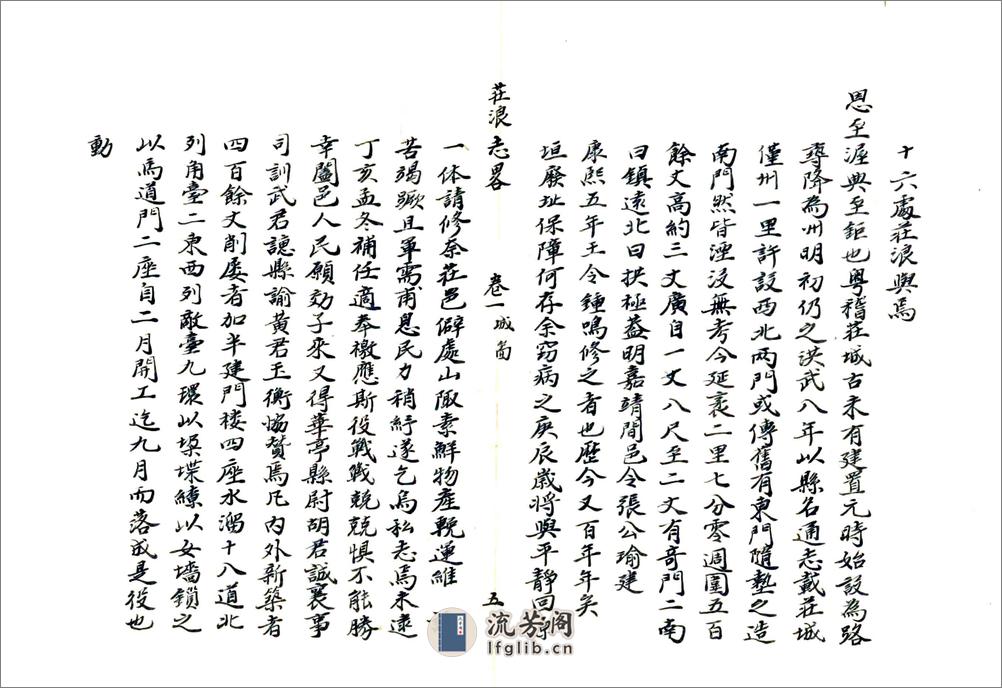 十六處莊浪與焉
恩至渥典至鉅也粵稽莊城古未有建置元時始設為路
尋降為州明初仍之洪武八年以縣名通志載莊城
僅州一里許設西北兩門或傳舊有東門隨塾之造
南門然皆湮沒無考今延袤二里七分零週圍五百
餘丈高約三丈廣自一丈八尺至二丈有奇門二南
曰鎮遠北曰拱極蓋明嘉靖間邑令張公瑜建
康熙五年王令鍾鳴修之者也歷今又百年年矣
垣廢址保障何存余窃病之庚辰歲將與平靜回
莊浪志畧
卷一城箇
五
一体請修奈莊邑僻處山陬素鮮物產輓運維
苦殫蹶且軍需甫息民力稍紓遂乞烏私志焉未逮
丁亥孟冬補任適奉檄應斯役戰戰兢兢惧不能勝
幸闔邑人民願効子來又得華亭縣尉胡君誠襄事
司訓武君諰縣諭黃君玉衡恊贊焉凡內外新築者
四百餘丈削屡者加半建門楼四座水溜十八道北
列角臺二東西列敵臺九環以垛堞繚以女墻鎖之
以為道門二座自二月開工迄九月而落成是役也
動
流芳阁
lfglib.cn